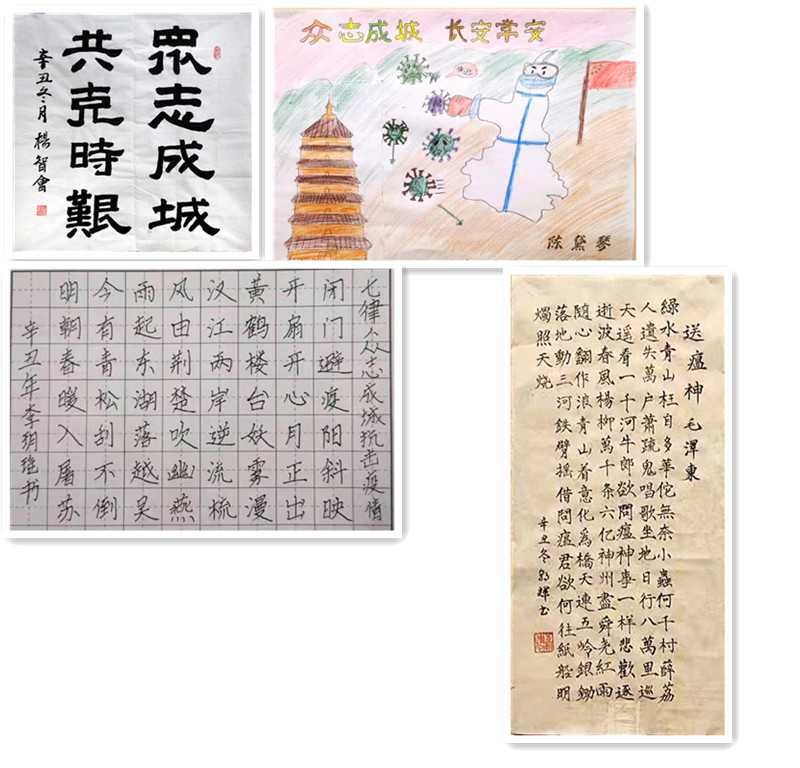 眾志成城
共克時艱
辛丑冬月 楊智會
众志成城 长安常安
陈黛琴
七律众志成城抗击疫情
闭门避疫阳斜映
开扇开心月正出
黄鹤楼台妖雾漫
汉江两岸逆流梳
风由荆楚吹幽燕
雨起东湖落越吴
今有青松刮不倒
明朝春暖入屠苏
辛丑年李玥瑶书
送瘟神 毛澤東
綠水青山枉自多華佗無奈小蟲何千村薜荔
人遺失萬户蕭疏鬼唱歌坐地日行八萬里巡
天遥看一千河牛郎欲問瘟神事一样悲歡逐
逝波春風楊柳萬千条六亿神州盡舜尧紅雨
随心翻作浪青山着意化爲橋天連五岭銀鋤
落地動三河鉄臂摇借問瘟君欲何往紙船明
燭照天烧
辛丑冬